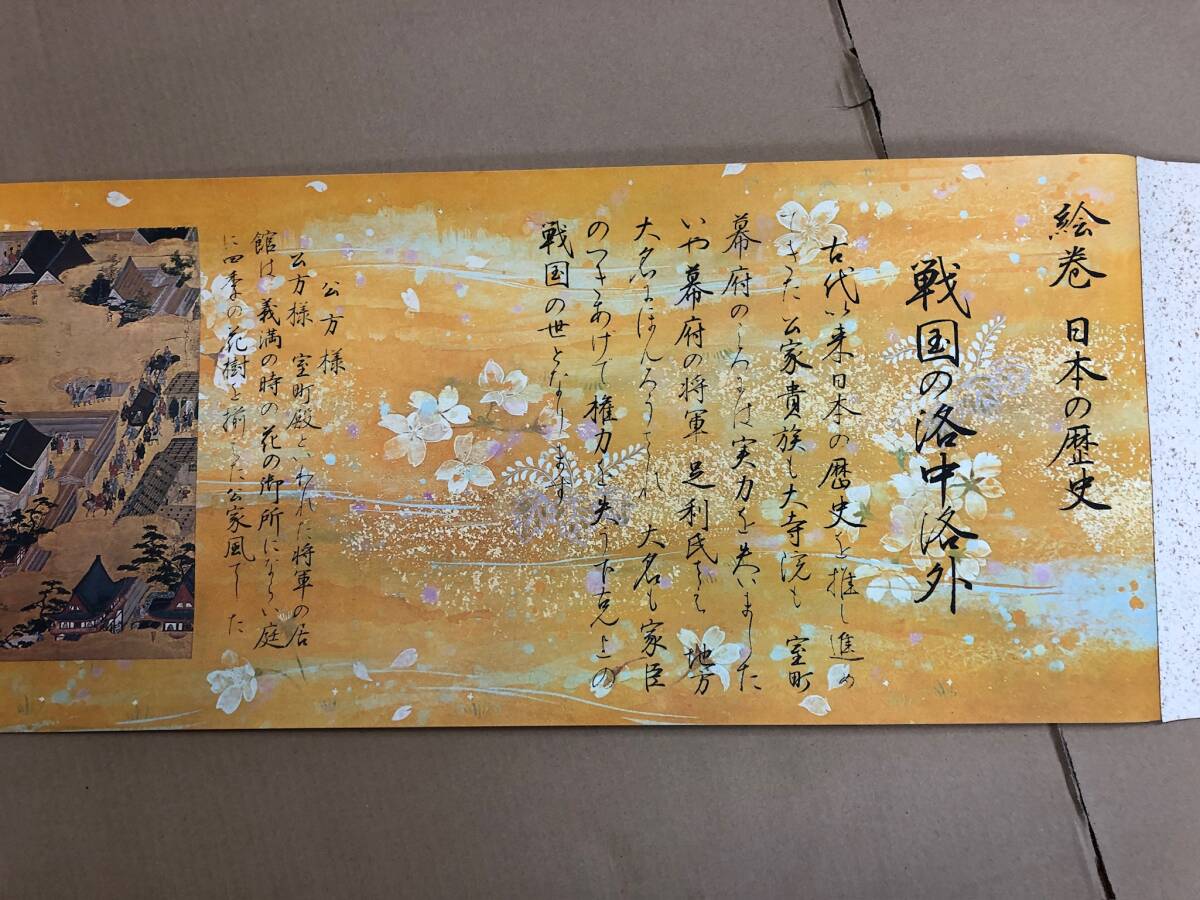 絵巻 日本の歴史
戦国の洛中洛外
古代以来日本の歴史を推し進め
てきた公家貴族も大寺院も 室町
幕府のころには実力を失いました
いや幕府の将軍足利氏すら 地方
大名にほんろうされ 大名も家臣
のつきあげで権力を失う下克上の
戦国の世となります
公方様
公方様 室町殿といわれた将軍の居
館は 義満の時の花の御所にならい庭
に四季の花樹を揃えた公家風でした